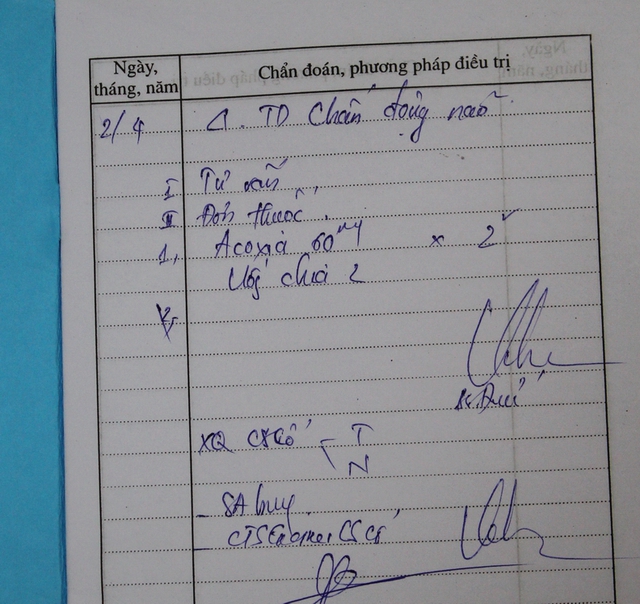 Ngày, tháng, năm
Chẩn đoán, phương pháp điều trị
2/4 Δ. TD Chấn động não
I Tư vấn
II Đơn thuốc
1, Acoxia 60mg x 2v
Uống chia 2
2,
XQ CS Cổ T
N
- SA
- CS cổ